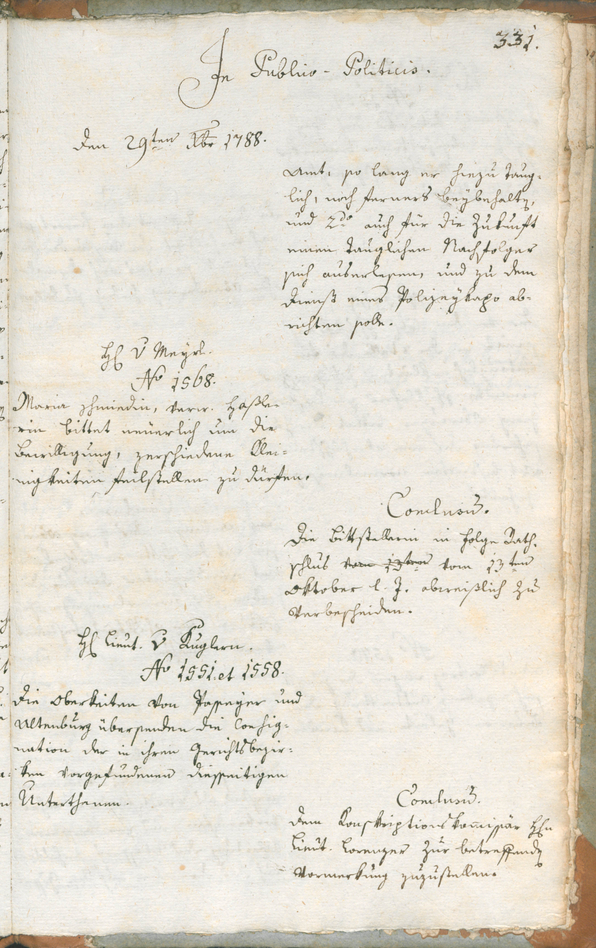 331.
In Publico-Politicis.
Den 29ten Xbr 1788.
Amt, so lang er hiezu taug-
lich, noch ferners beybehalten,
und 2do auch für die Zukunft
einen tauglichen Nachfolger
sich auserlesen, und zu dem
Dienst eines Polizeykapo ab-
richten solle.
H v Mayrl.
No 1568.
Maria Schmiedin, verw. Hasle-
rin bittet neuerlich um die
Bewilligung, verschiedene Klei-
nigkeiten feilstellen zu dürfen.
Conclusum.
Die Bittstellerin in Folge Rath-
schlus vom 13ten vom 13ten
Oktober l. J. abweislich zu
verbescheiden.
H Lieut. v Kuglern.
No 1551. et 1558.
Die Oberkeiten von Passeyer und
Altenburg übersenden die Consig-
nation der in ihren Gerichtsbezir-
ken vorgefundenen diesseitigen
Unterthanen.
Conclusum.
Dem Konskriptionskommissär Hn
Lieut. Lorenzer zur betreffenden
Vormerkung zuzustellen.